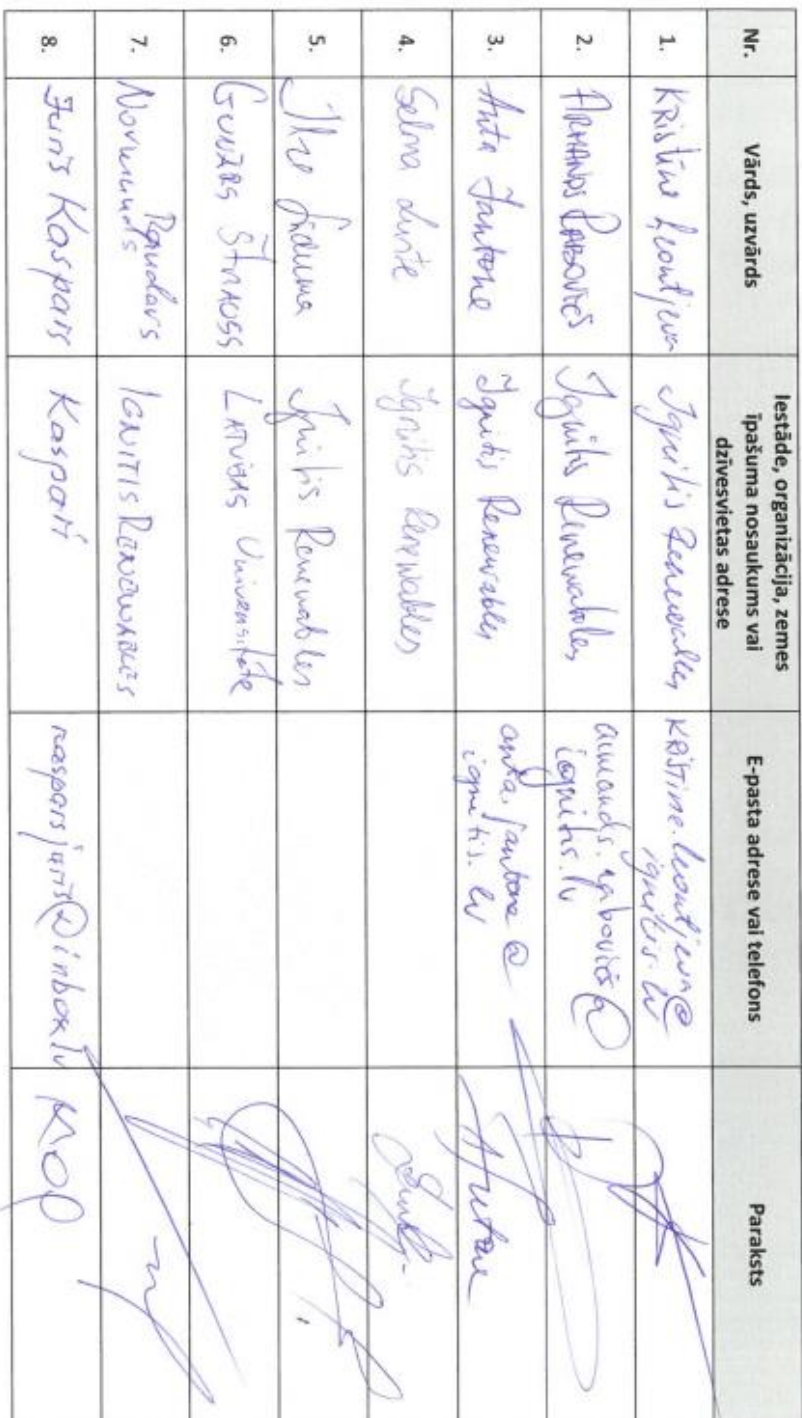 Nr.
Vārds, uzvārds
Iestāde, organizācija, zemes
īpašuma nosaukums vai
dzīvesvietas adrese
E-pasta adrese vai telefons
Paraksts
1.
Kristīne Leontjeva
Ignitis Renewables
Kristine.leontjeva@
ignitis.lv
2.
Armands
Ignitis Renewables
ignitis.lv
3.
Anta Jantone
Ignitis Renewables
anta.jantone@
ignitis.lv
4.
Selma
Ignitis Renewables
5.
Ignitis Renewables
6.
Gunārs Štrauss
Latvijas Universitāte
7.
Normunds
Ignitis Renewables
8.
Juris Kaspars
Kaspari
kasparsjuris@inbox.lv